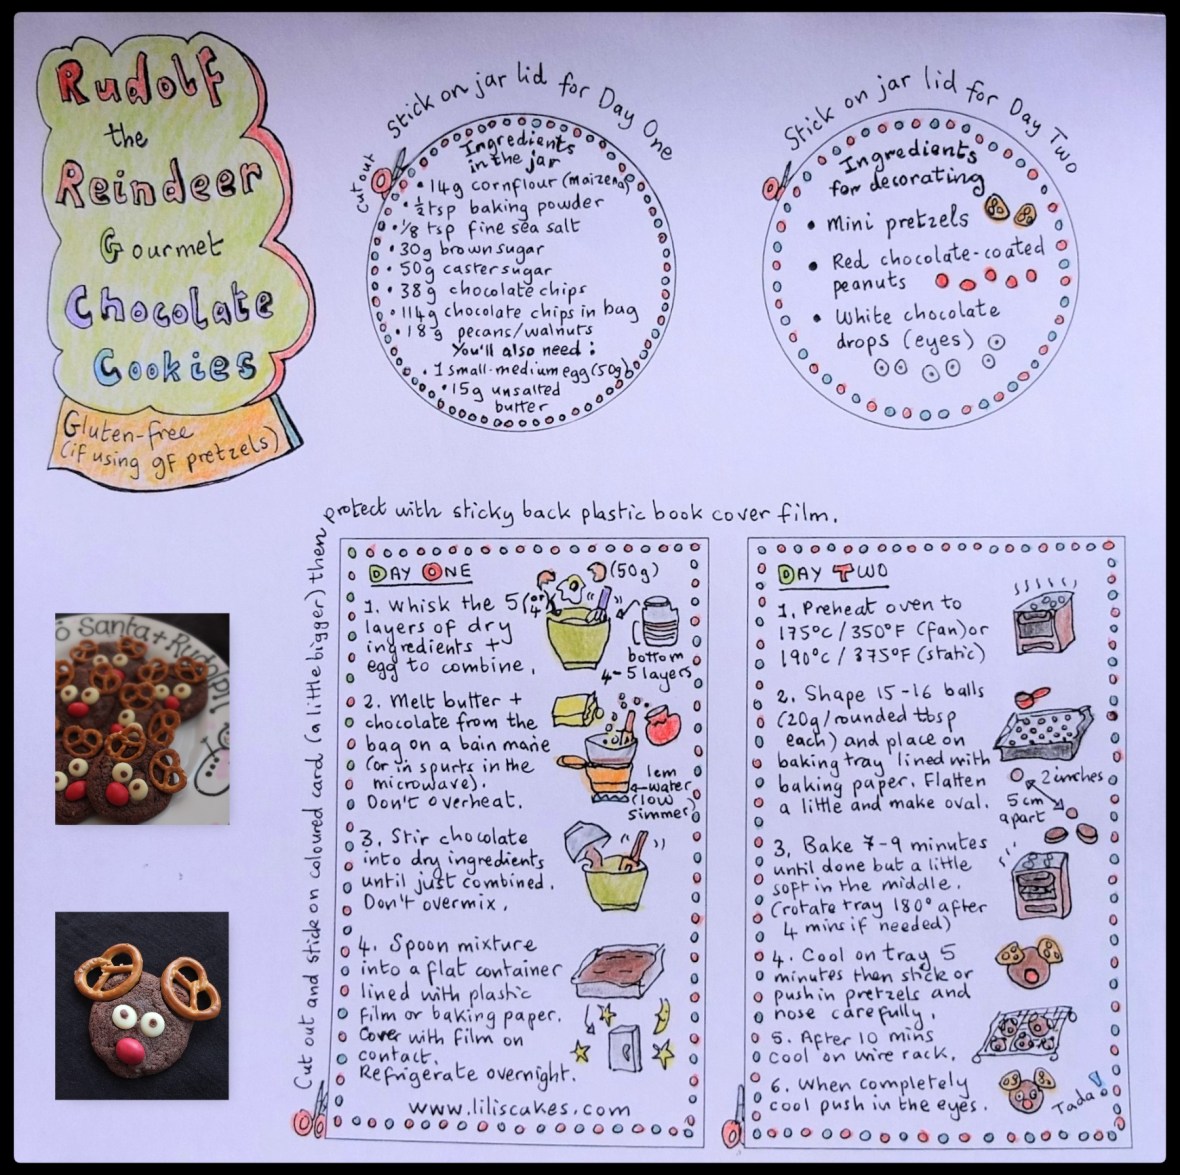 Rudolf
the
Reindeer
Gourmet
Chocolate
Cookies
Gluten-free
(if using gf pretzels)
Stick on jar lid for Day One
cut out
Ingredients
in the jar
• 14g cornflour (maizena)
• ½ tsp baking powder
• ⅛ tsp fine sea salt
• 30g brown sugar
• 50g caster sugar
• 38g chocolate chips
• 114g chocolate chips in bag
• 18g pecans/walnuts
You'll also need:
• 1 small-medium egg (50g)
• 15g unsalted
butter
Stick on jar lid for Day Two
Ingredients
for decorating
• Mini pretzels
• Red chocolate-coated
peanuts
• White chocolate
drops (eyes)
Cut out and stick on coloured card (a little bigger) then
protect with sticky back plastic book cover film.
DAY ONE
(50g)
1. Whisk the 5 (or 4)
layers of dry
ingredients +
egg to combine.
bottom
4-5 layers
2. Melt butter +
chocolate from the
bag on a bain marie
(or in spurts in the
microwave).
Don't overheat.
1cm
water
(low
simmer)
3. Stir chocolate
into dry ingredients
until just combined.
Don't overmix.
4. Spoon mixture
into a flat container
lined with plastic
film or baking paper.
Cover with film on
contact.
Refrigerate overnight.
www.liliscakes.com
DAY TWO
1. Preheat oven to
175°C/350°F (fan) or
190°C/375°F (static)
2. Shape 15-16 balls
(20g/rounded tbsp
each) and place on
baking tray lined with
baking paper. Flatten
a little and make oval.
2 inches
5cm
apart
3. Bake 7-9 minutes
until done but a little
soft in the middle.
(rotate tray 180° after
4 mins if needed)
4. Cool on tray 5
minutes then stick or
push in pretzels and
nose carefully.
5. After 10 mins
cool on wire rack.
6. When completely
cool push in the eyes.
Tada!
Santa + Rudolph